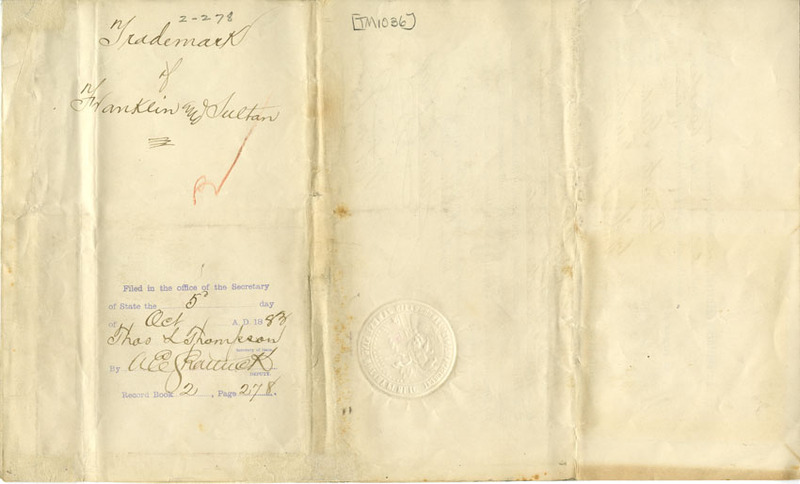 2-278
[TM1036]
Trademark
of
Franklin M Sultan
2
Filed in the office of the Secretary
of State the 5 day
of Oct A. D. 1883
Thos L Thompson
Secretary of State
By A E Shattuck
DEPUTY.
Record Book 2, Page 278.